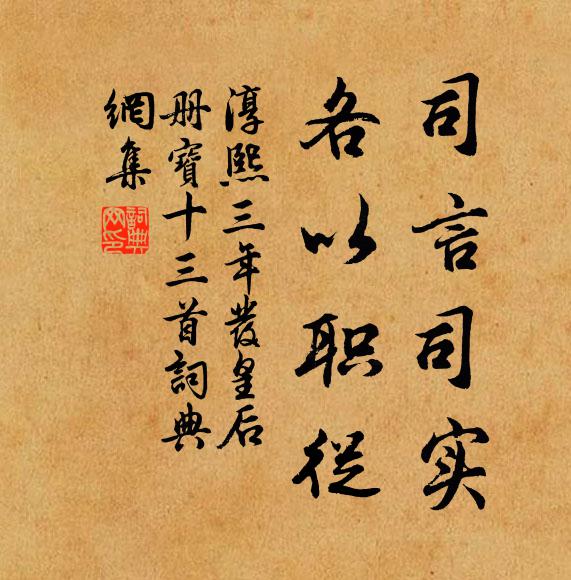 司言司实
各以职從
淳熙三年發皇后
册寶十三首詞典
網集
詞典
网印